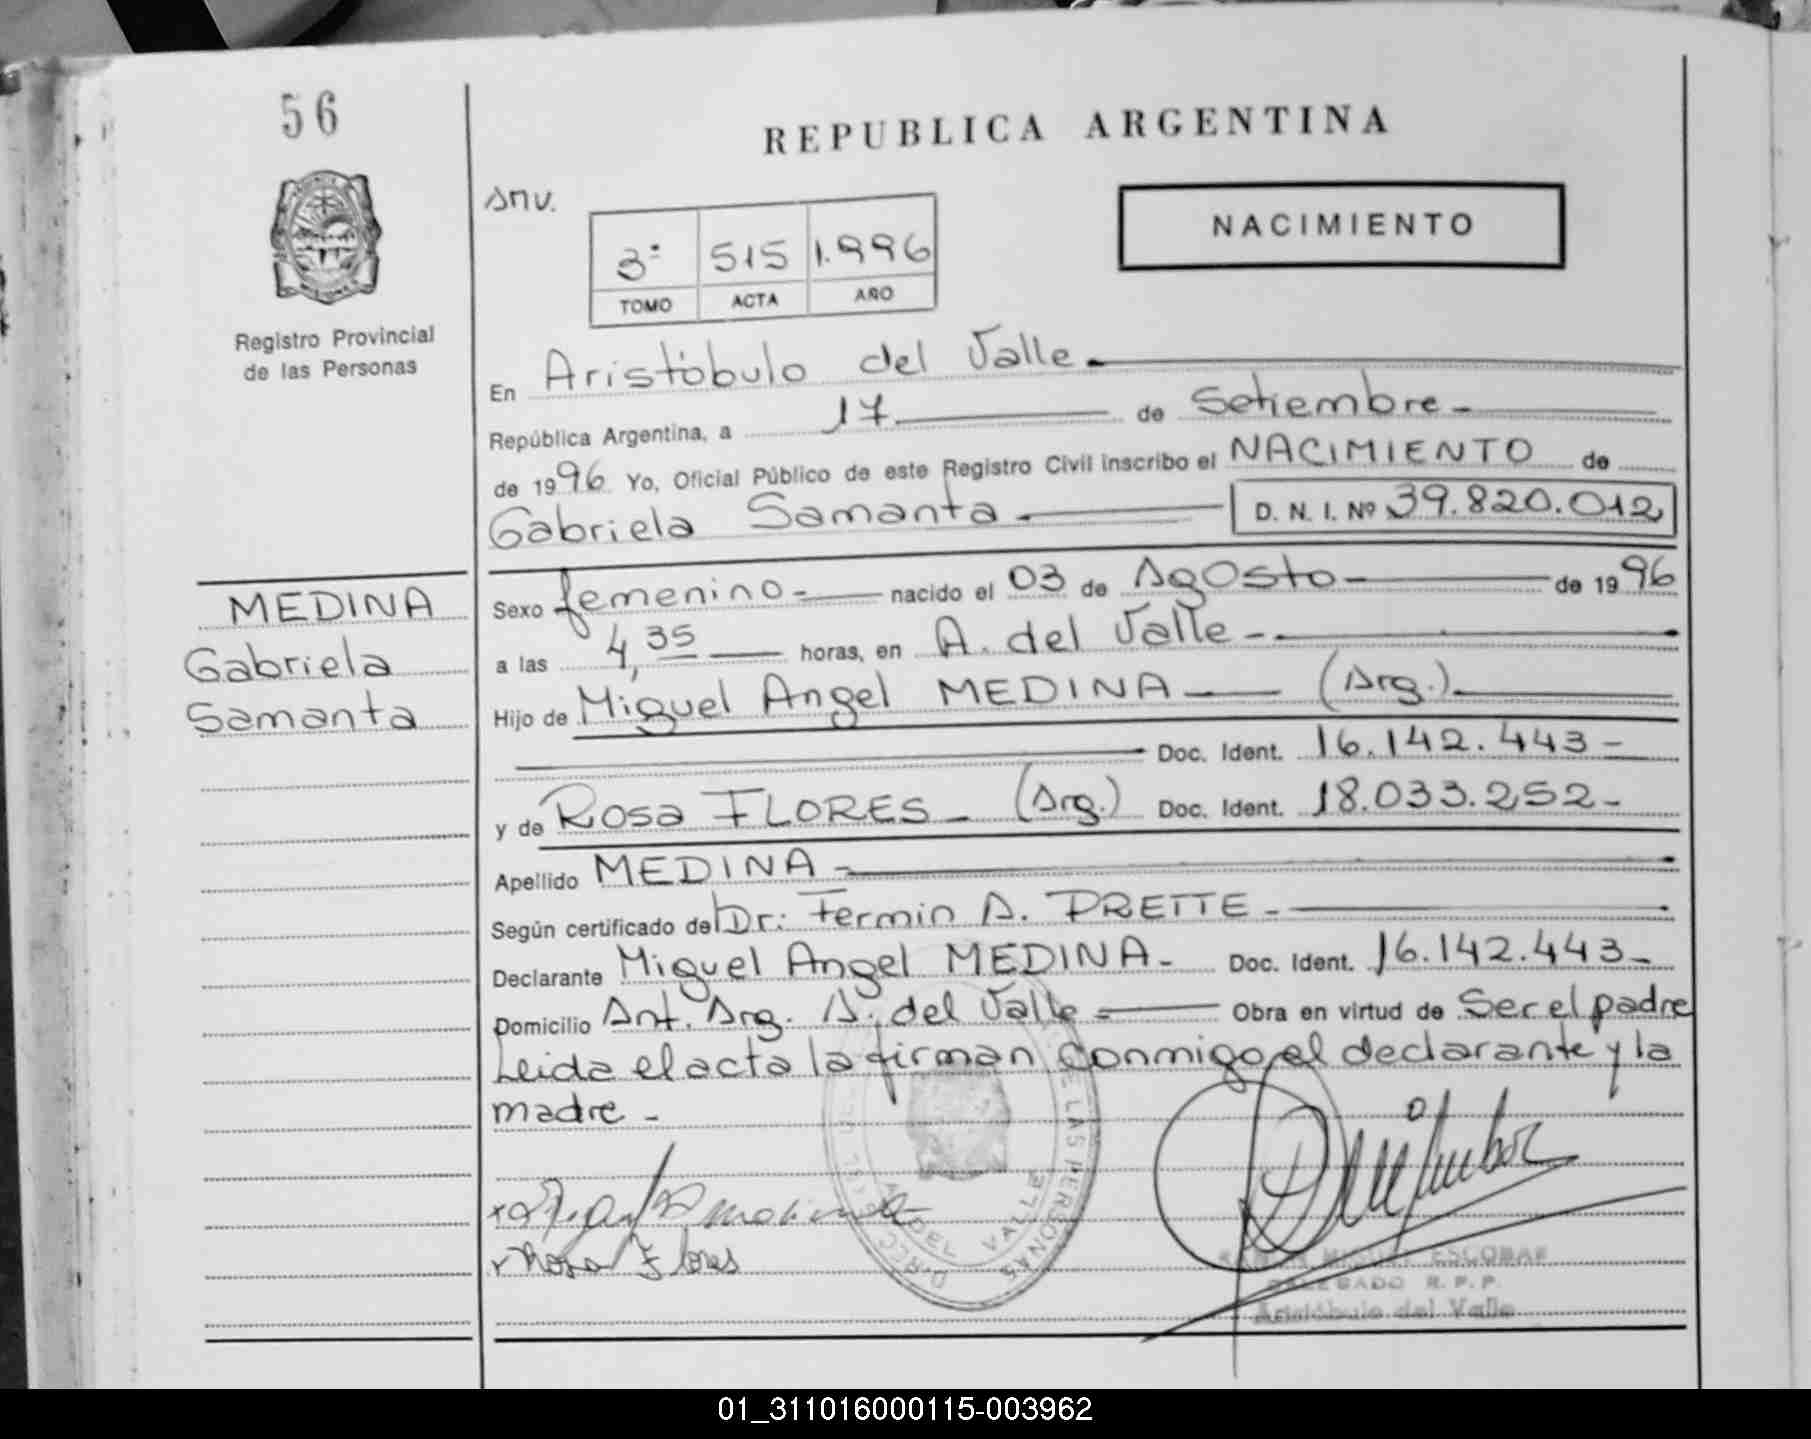 56
REPUBLICA ARGENTINA
NACIMIENTO
3º 515 1.996
TOMO ACTA AÑO
Registro Provincial
de las Personas
En Aristóbulo del Valle.
República Argentina, a 17 de Setiembre -
de 1996 Yo, Oficial Público de este Registro Civil inscribo el NACIMIENTO de
Gabriela Samanta - D. N. I. Nº 39.820.012
MEDINA
Gabriela
Samanta
Sexo femenino - nacido el 03 de Agosto - de 1996
a las 4,35 horas, en A. del Valle -
Hijo de Miguel Angel MEDINA (Arg.)
Doc. Ident. 16.142.443 -
y de Rosa FLORES - (Arg.) Doc. Ident. 18.033.252 -
Apellido MEDINA -
Según certificado del Dr: Fermin A. PRETTE -
Declarante Miguel Angel MEDINA - Doc. Ident. 16.142.443 -
Domicilio Ant. Arg. A. del Valle - Obra en virtud de Ser el padre
Leida el acta la firman conmigo el declarante y la
madre -
DE LAS PERSONAS
A. DEL VALLE
Rosa Flores
MIGUEL ESCOBAR
DELEGADO R. P. P.
Aristóbulo del Valle
01_311016000115-003962